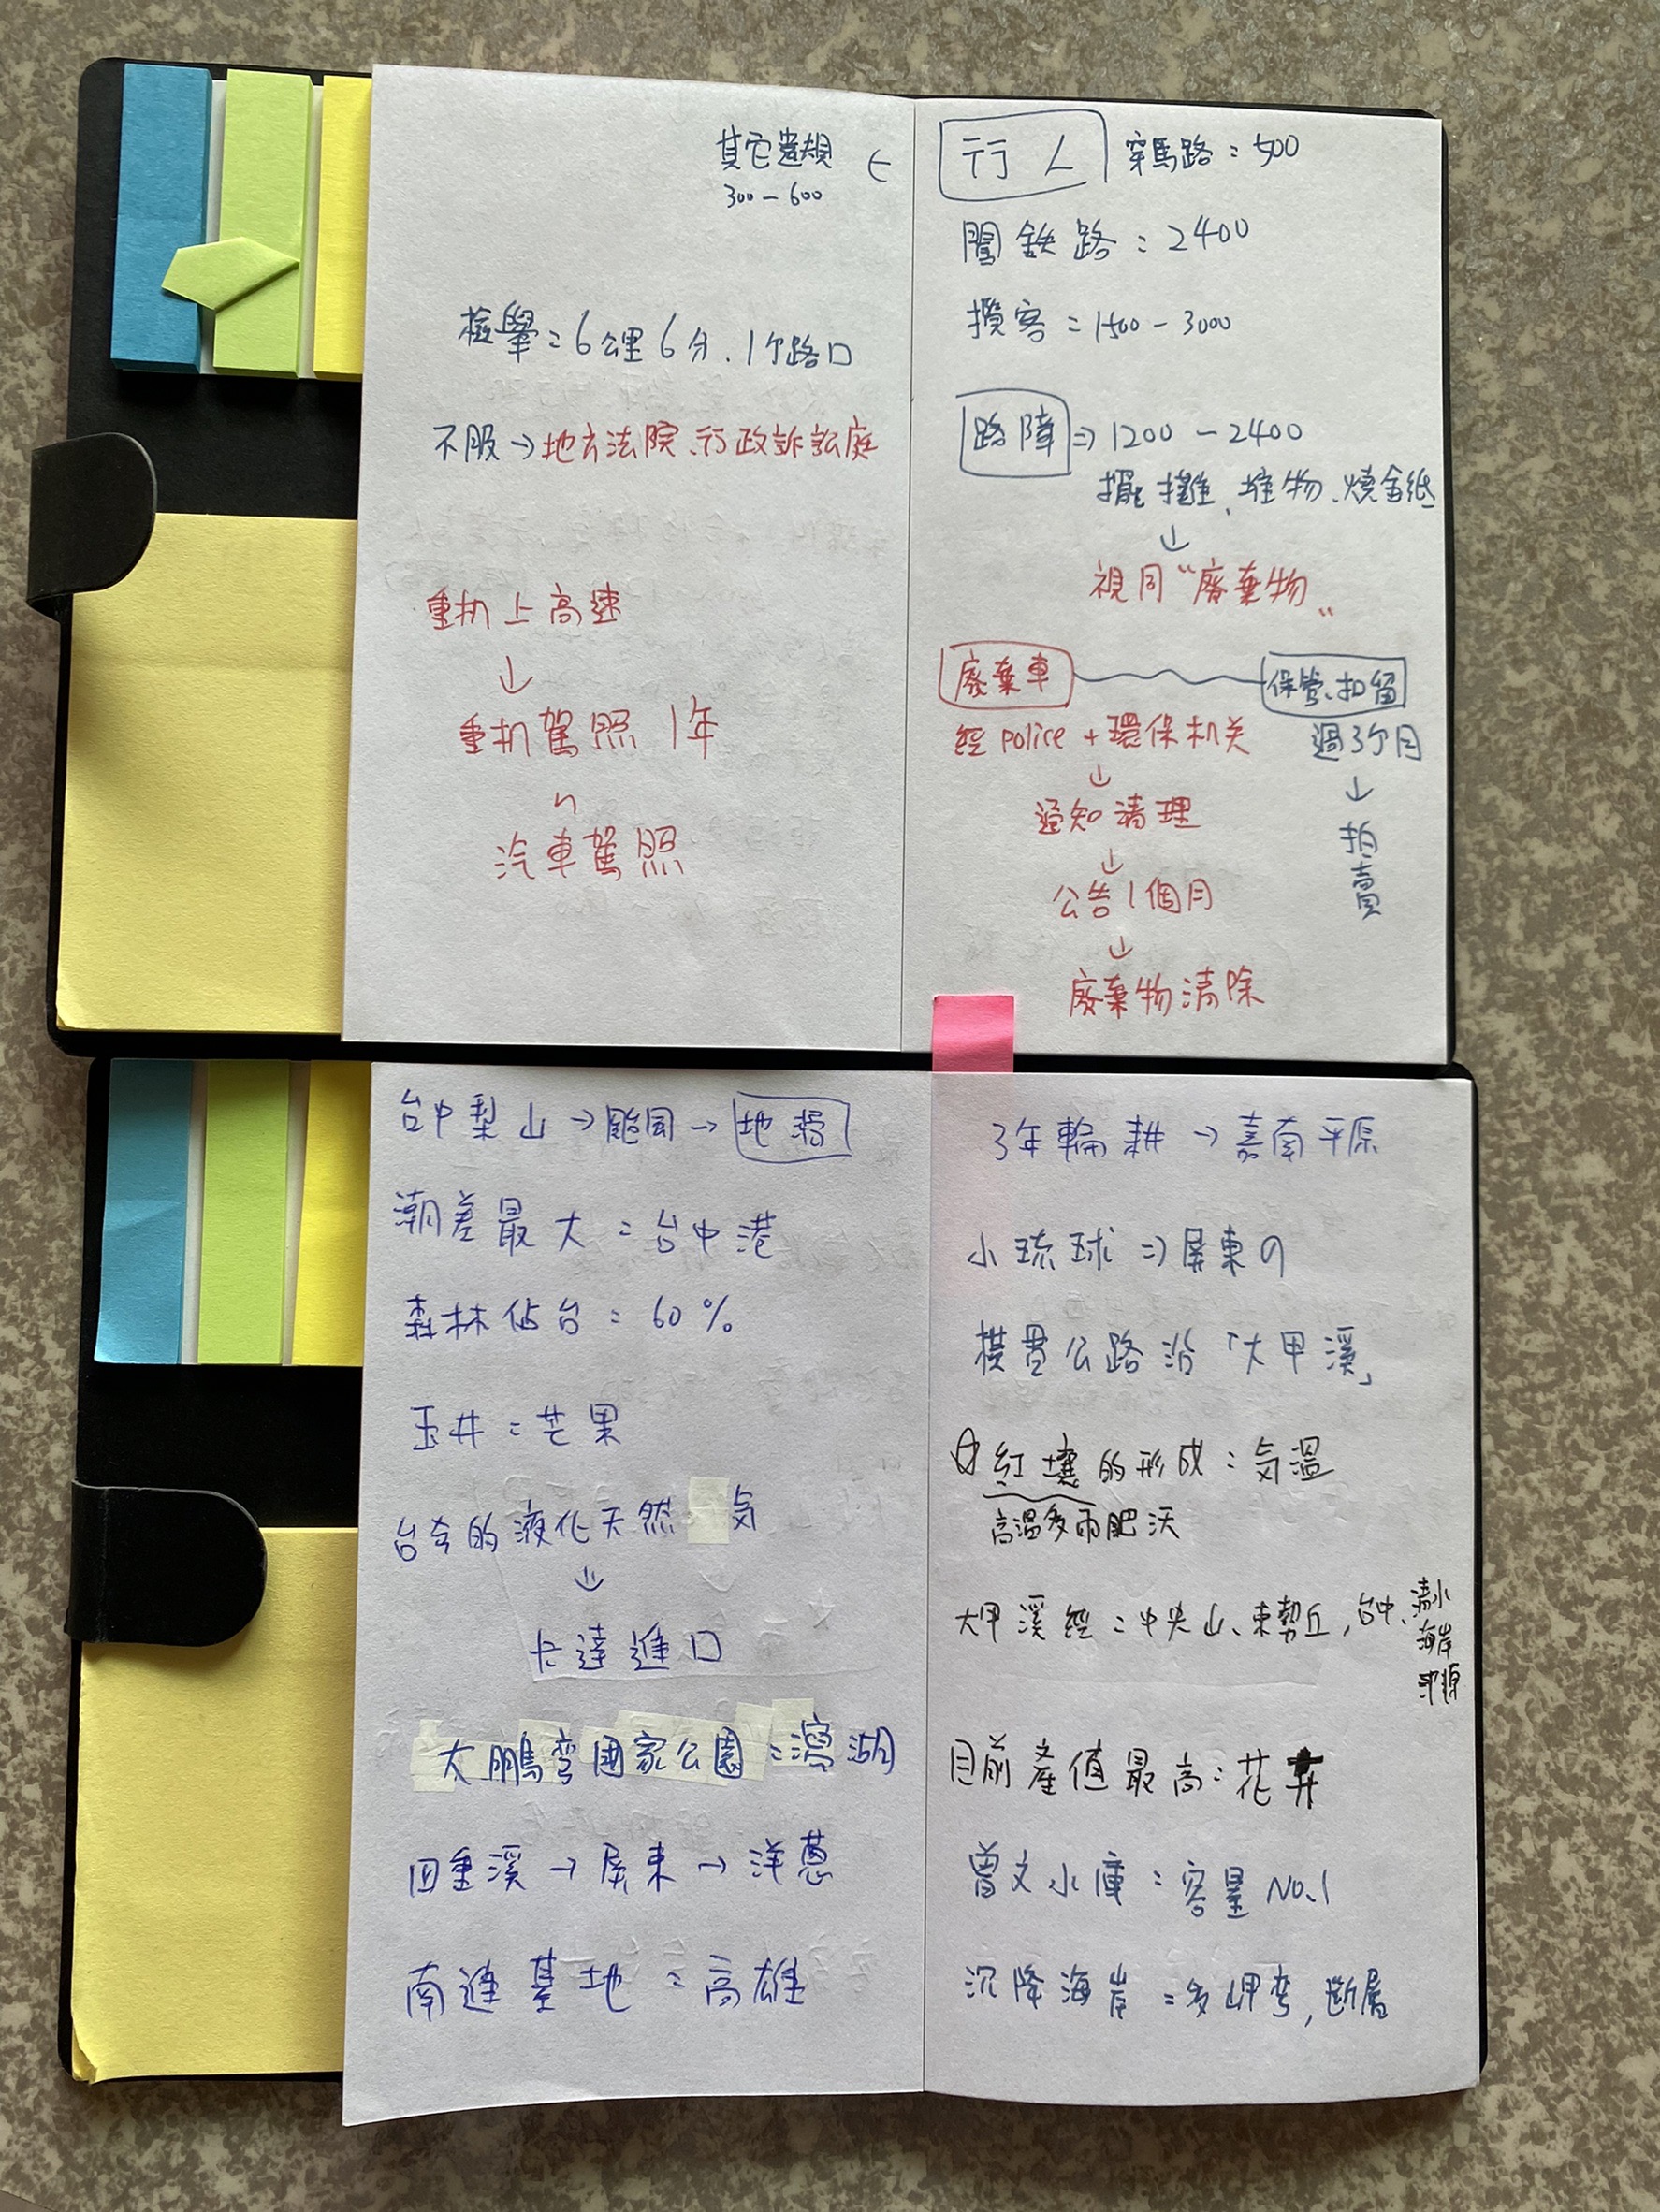 其它違規 ←
300－600
檢舉：6公里6分、1个路口
不服→地方法院、行政訴訟庭
重机上高速
↓
重机駕照 1年
汽車駕照
行人 穿馬路：500
闖鉄路：2400
攬客：1500－3000
路障⇒1200－2400
擺攤、堆物、燒金紙
↓
視同“廢棄物„
廢棄車 保管、扣留
經police＋環保机关 過3个月
↓ ↓
通知清理 拍賣
↓
公告1個月
↓
廢棄物清除
台中梨山→颱風→地塌
潮差最大：台中港
森林佔台：60%
玉井：芒果
台灣的液化天然気
↓
卡達進口
大鵬弯國家公園：潟湖
四重溪→屏東→洋蔥
南進基地：高雄
3年輪耕→嘉南平原
小琉球⇒屏東の
横貫公路沿「大甲溪」
紅壤的形成：気温
高溫多雨肥沃
大甲溪經：中央山、東勢丘,台中、清水
海岸
平原
目前產值最高：花卉
曾文水庫：容量NO.1
沉降海岸：多岬弯,斷層